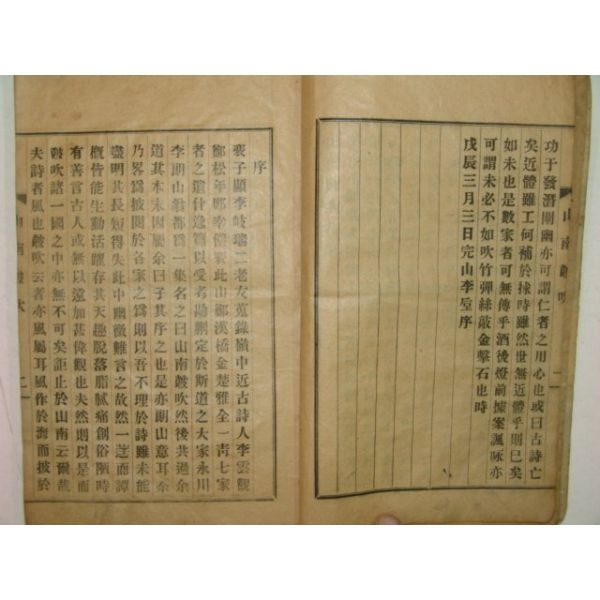 功于發潛闡幽亦可謂仁者之用心也或曰古詩亡
矣近體雖工何補於捄時雖然世無近體乎則已矣
如未也是數家者可無傳乎酒後燈前據案諷咏亦
可謂未必不如吹竹彈絲敲金擊石也時
戊辰三月三日完山李序
山南皷吹
二
序
裵子顯李岐瑞二老友蒐錄嶺中近古詩人李雲觀
鄭松年鄭幸儂裵此山鄭漢橋金楚雅全一靑七家
者之遺什逸篇以受考勘刪定於斯道之大家永川
李朗山翁都爲一集名之曰山南皷吹然後共過余
道其本末因屬余曰子其序之也是亦朗山意耳余
乃畧爲披閱於各家之爲則以吾不理於詩雖未能
盡明其長短得失此中幽微難言之故然一而譚
槪皆能生動活躍存其天趣脫落脂膩痛創俗陋時
有善言古人或無以遠加甚偉觀也夫然則以是而
皷吹諸一國之中亦無不可矣詎止於山南云爾哉
夫詩者風也皷吹云者亦風屬耳風作於海而披於